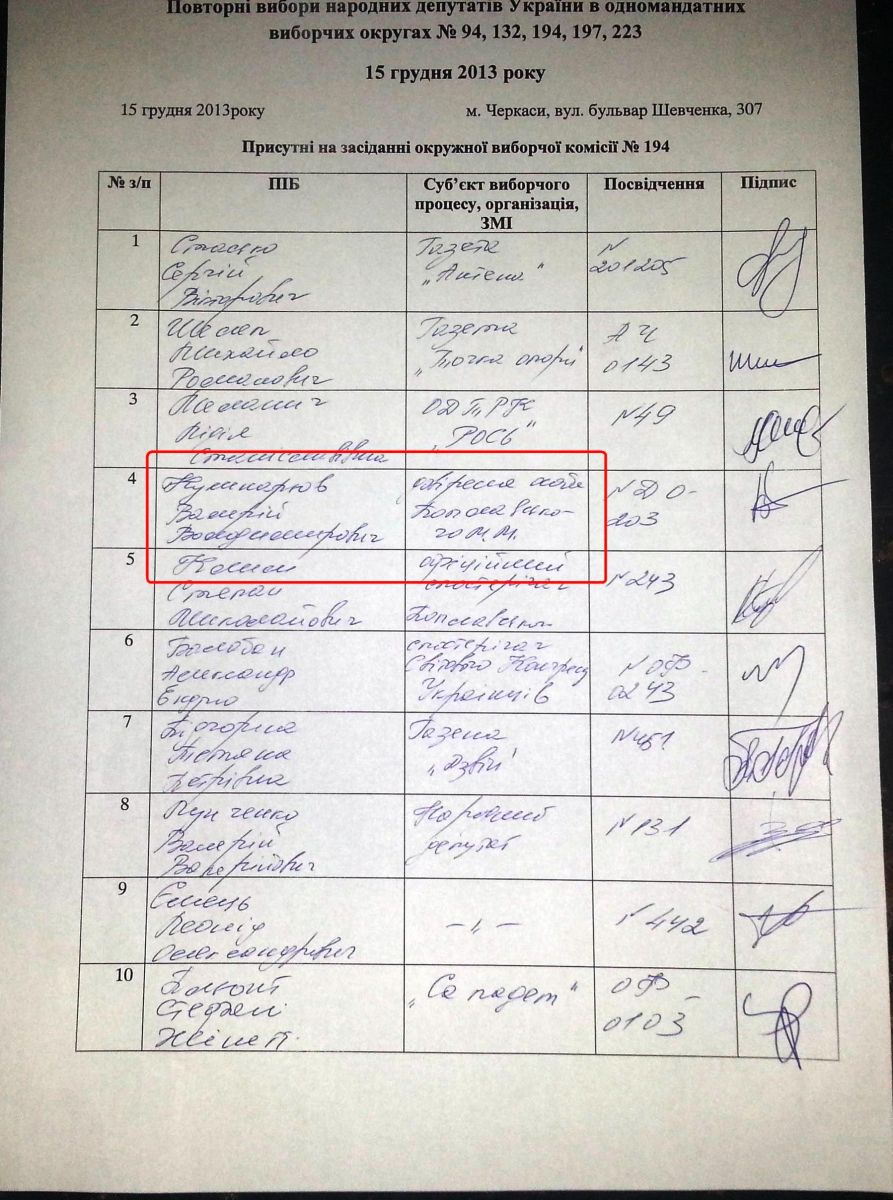 Повторні вибори народних депутатів України в одномандатних
виборчих округах № 94, 132, 194, 197, 223
15 грудня 2013 року
15 грудня 2013року
м. Черкаси, вул. бульвар Шевченка, 307
Присутні на засіданні окружної виборчої комісії № 194
№ з/п
ПІБ
Суб’єкт виборчого
процесу, організація,
ЗМІ
Посвідчення
Підпис
1
Сергій
Вікторович
Газета
„Антена“
№
201205
2
Михайло
Романович
Газета
„Точка опори“
АЧ
0143
3
Лілія
Станіславівна
ОДТРК
„РОСЬ“
№49
4
Валерій
Володимирович
довірена особа
Поплавсько-
го М.М.
№ДО-
203
5
Степан
Миколайович
офіційний
спостерігач
№243
6
Балабан
Александр
Ендрю
спостерігач
Світового Конгресу
Українців
№ОФ-
0243
7
Підгорна
Тетяна
Петрівна
Газета
„Дзвін“
№451
8
Валерій
Валерійович
Народний
депутат
№131
9
Ємець
Леонід
Олександрович
– „ –
№442
10
Стефані
„Са
ОФ-
0103